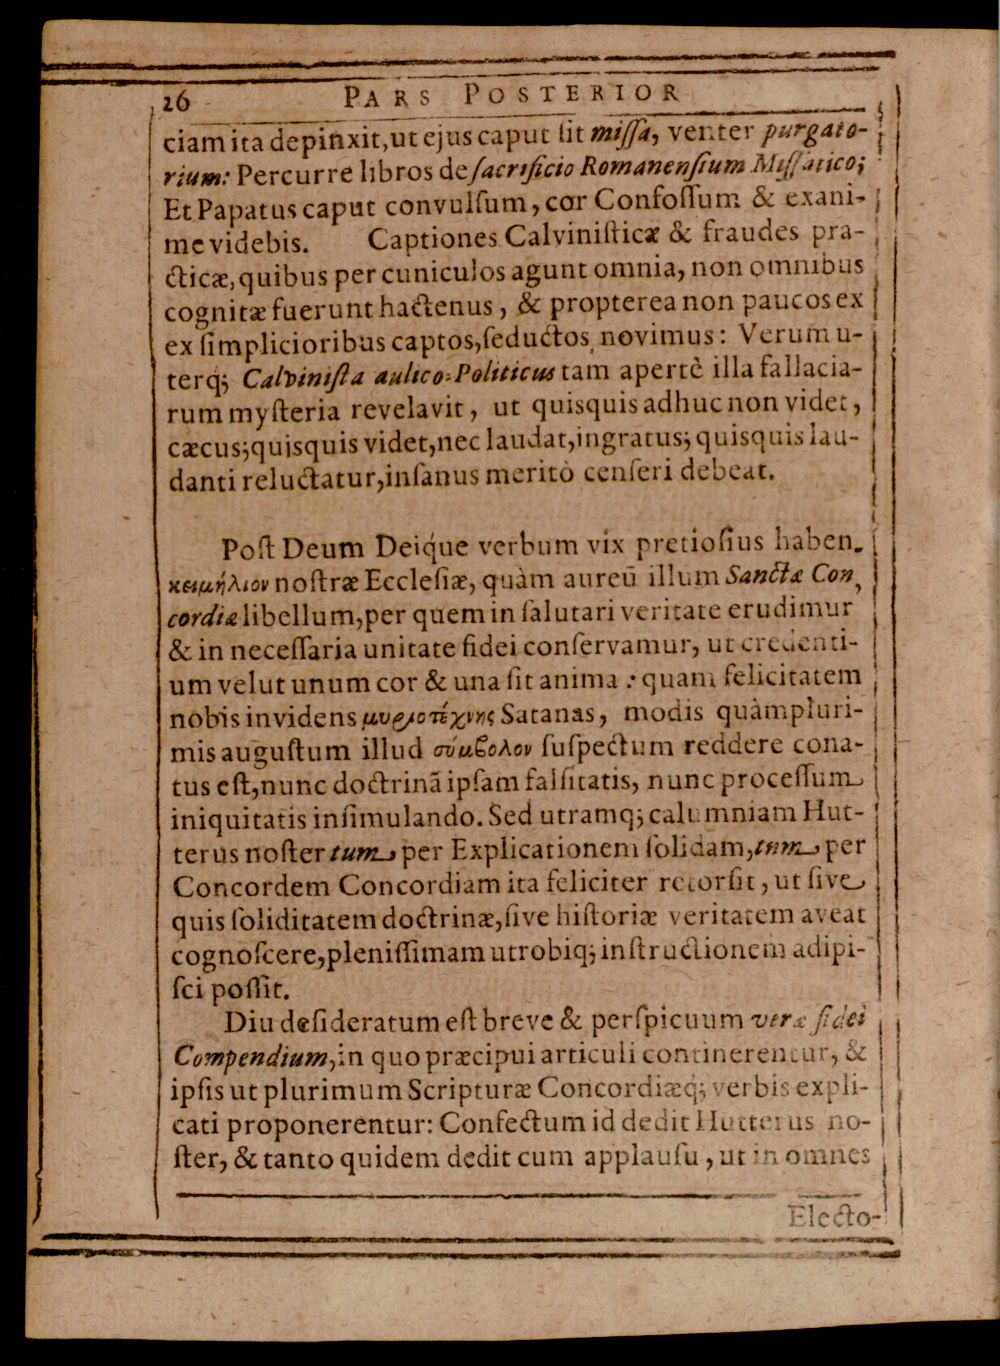 26 PARS POSTERIOR
ciam ita depinxit, ut ejus caput sit missa, venter purgato-
rium: Percurre libros de sacrificio Romanensium Missatico;
Et Papatus caput convulsum, cor Confossum & exani-
me videbis. Captiones Calvinisticæ & fraudes pra-
cticæ, quibus per cuniculos agunt omnia, non omnibus
cognitæ fuerunt hactenus, & propterea non paucos ex
ex simplicioribus captos, seductos novimus: Verum u-
terq; Calvinista aulico-Politicus tam apertè illa fallacia-
rum mysteria revelavit, ut quisquis adhuc non videt,
cæcus; quisquis videt, nec laudat, ingratus; quisquis lau-
danti reluctatur, insanus meritò censeri debeat.
Post Deum Deiq́ue verbum vix pretiosius haben.
κειμήλιον nostræ Ecclesiæ, quàm aureū illum Sanctæ Con
cordiæ libellum, per quem in salutari veritate erudimur
& in necessaria unitate fidei conservamur, ut credenti-
um velut unum cor & una sit anima: quam felicitatem
nobis invidens μυριοτέχνης Satanas, modis quàmpluri-
mis augustum illud σύμβολον suspectum reddere cona-
tus est, nunc doctrinā ipsam falsitatis, nunc processum
iniquitatis insimulando. Sed utramq; calumniam Hut-
terus noster tum per Explicationem solidam, tum per
Concordem Concordiam ita feliciter retorsit, ut sive
quis soliditatem doctrinæ, sive historiæ veritatem aveat
cognoscere, plenissimam utrobiq; instructionem adipi-
sci possit.
Diu desideratum est breve & perspicuum veræ fidei
Compendium, in quo præcipui articuli continerentur, &
ipsis ut plurimum Scripturæ Concordiæq́; verbis expli-
cati proponerentur: Confectum id dedit Hutterus no-
ster, & tanto quidem dedit cum applausu, ut in omnes
Electo-